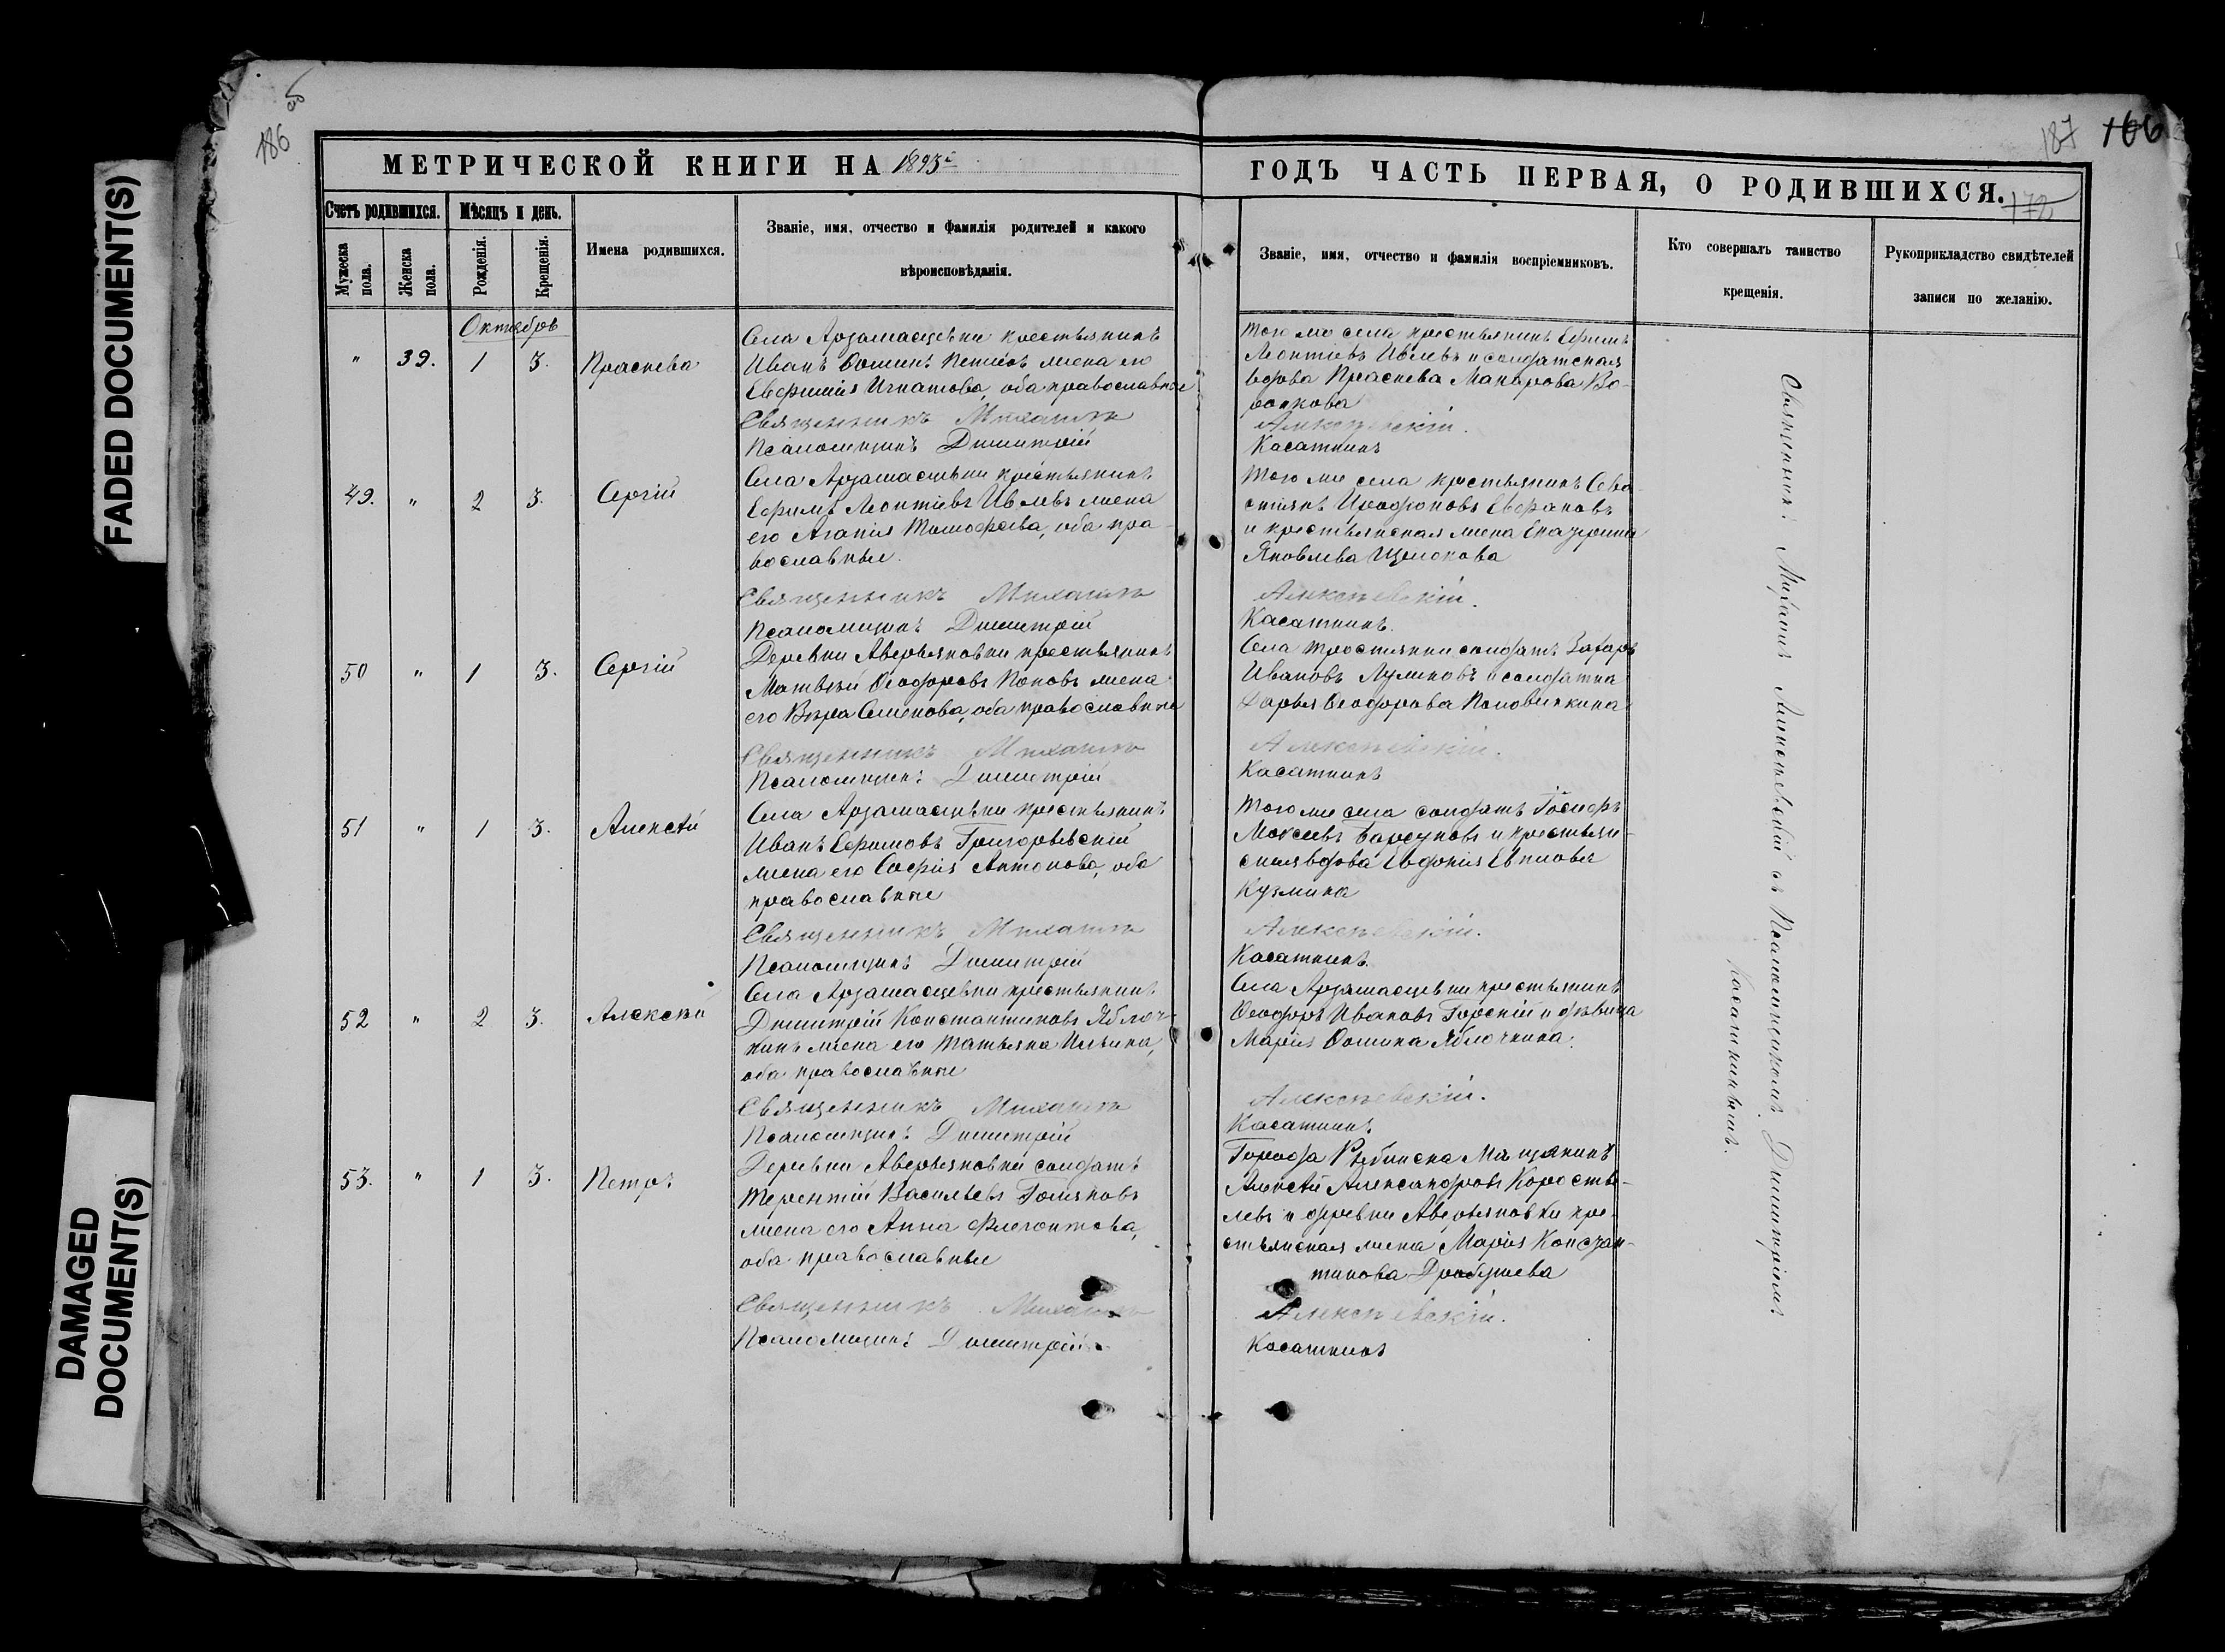 FADED DOCUMENT(S)
DAMAGED
DOCUMENT(S)
186 об
187 166
172
МЕТРИЧЕСКОЙ КНИГИ НА 1893й
ГОДЪ ЧАСТЬ ПЕРВАЯ, О РОДИВШИХСЯ.
Счетъ родившихся.
Мѣсяцъ и день.
Мужеска пола.
Женска пола.
Рожденія.
Крещенія.
Имена родившихся.
Званіе, имя, отчество и фамилія родителей и какого
вѣроисповѣданія.
Званіе, имя, отчество и фамилія воспріемниковъ.
Кто совершалъ таинство
крещенія.
Рукоприкладство свидѣтелей
записи по желанію.
Октябрь
" 39. 1 3. Праскева
Села Арзамасцевки крестьянинъ
Иванъ Ѳоминъ жена его
Евфимія Игнатова, оба православные
Священникъ Михаилъ
Псаломщикъ Димитрій
Того же села крестьянинъ Ефимъ
Леонтіевъ Ивлевъ и солдатская
вдова Праскева Макарова Во-
ронкова
Алексѣевскій.
Касаткинъ
49. " 2 3. Сергій
Села Арзамасцевки крестьянинъ
Ефимъ Леонтіевъ Ивлевъ жена
его Агапія Тимофеева, оба пра-
вославные.
Священникъ Михаилъ
Псаломщикъ Димитрій
Того же села крестьянинъ Сева-
стіянъ
и крестьянская жена Екатерина
Яковлева Щелокова
Алексѣевскій.
Касаткинъ.
50 " 1 3. Сергій
Деревни Аверьяновки крестьянинъ
Матвѣй Ѳеодоровъ Поповъ жена
его Вѣра Семенова, оба православные
Священникъ Михаилъ
Псаломщикъ Димитрій
Села Тростянки солдатъ Захаръ
Ивановъ и солдатка
Дарья Ѳеодорова Половинкина
Алексѣевскій.
Касаткинъ
51 " 1 3. Алексѣй
Села Арзамасцевки крестьянинъ
Иванъ Ефимовъ Григорьевскій
жена его Софія Антонова, оба
православные
Священникъ Михаилъ
Псаломщикъ Димитрій
Того же села солдатъ Іосифъ
Барсуковъ и крестьян-
ская вдова Евдокія
Кузмина
Алексѣевскій.
Касаткинъ.
52 " 2 3. Алексѣй
Села Арзамасцевки крестьянинъ
Димитрій Константиновъ Яблоч-
кинъ жена его Татьяна Ильина,
оба православные
Священникъ Михаилъ
Псаломщикъ Димитрій
Села Арзамасцевки крестьянинъ
Ѳеодоръ Ивановъ Горскій и дѣвица
Марія Ѳомина Яблочкина.
Алексѣевскій.
Касаткинъ
53. " 1 3. Петръ
Деревни Аверьяновки солдатъ
Терентій Васильевъ
жена его Анна Флегонтова,
оба православные
Священникъ Михаилъ
Псаломщикъ Димитрій
Города Рыбинска Мѣщанинъ
Алексѣй Александровъ Коросте-
левъ и деревни Аверьяновки кре-
стьянская жена Марія Констан-
тинова Дробушева
Алексѣевскій.
Касаткинъ
Священникъ Михаилъ Алексѣевскій съ Псаломщикомъ Димитріемъ
Касаткинымъ.